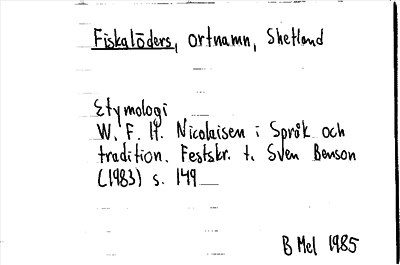 Fiskalöders, ortnamn, Shetland
Etymologi
W. F. H. Nicolaisen i Språk och
tradition. Festskr. t. Sven Benson
(1983) s. 149
B Mel 1985